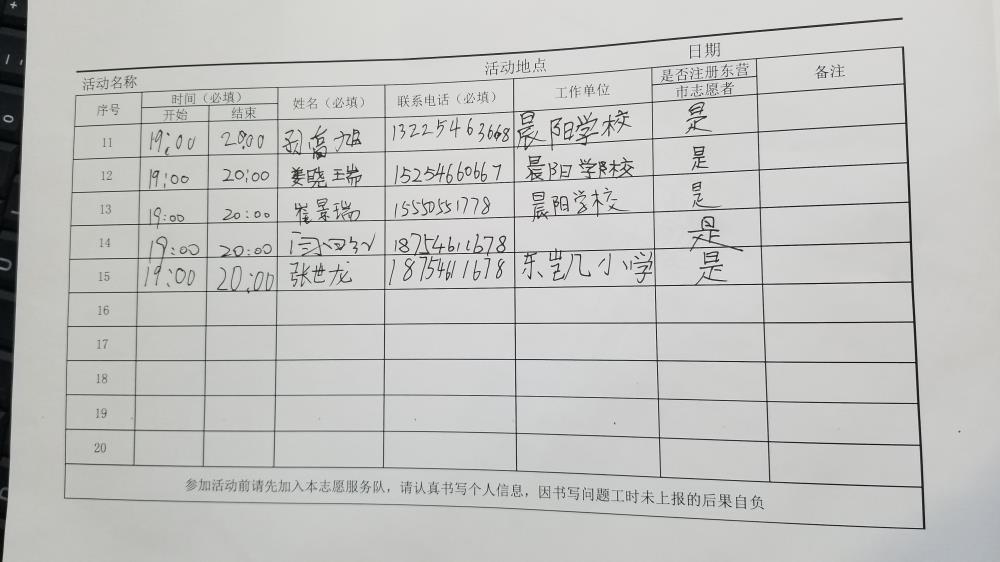 活动名称 活动地点 日期
序号 时间（必填） 姓名（必填） 联系电话（必填） 工作单位 是否注册东营市志愿者 备注
开始 结束
11 19:00 20:00 孙高旭 13225463668 晨阳学校 是
12 19:00 20:00 姜晓瑞 15254660667 晨阳学校 是
13 19:00 20:00 崔景瑞 15550551778 晨阳学校 是
14 19:00 20:00 18754611678 是
15 19:00 20:00 张世龙 18754611678 东 小学 是
16
17
18
19
20
参加活动前请先加入本志愿服务队，请认真书写个人信息，因书写问题工时未上报的后果自负